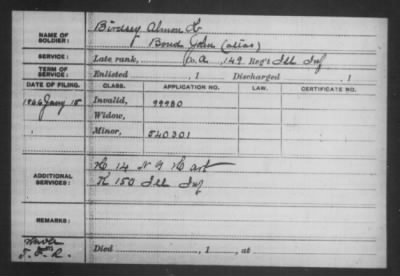 NAME OF SOLDIER: Birdsey Almon
Bond John (alias)
SERVICE: Late rank, Co. A, 142 Reg't Ill Inf
TERM OF SERVICE: Enlisted , 1 Discharged , 1
DATE OF FILING. CLASS. APPLICATION NO. LAW. CERTIFICATE NO.
Invalid, 99980
Widow,
Minor, 540201
ADDITIONAL SERVICES:
K 150 Ill Inf
REMARKS:
Died , 1 , at